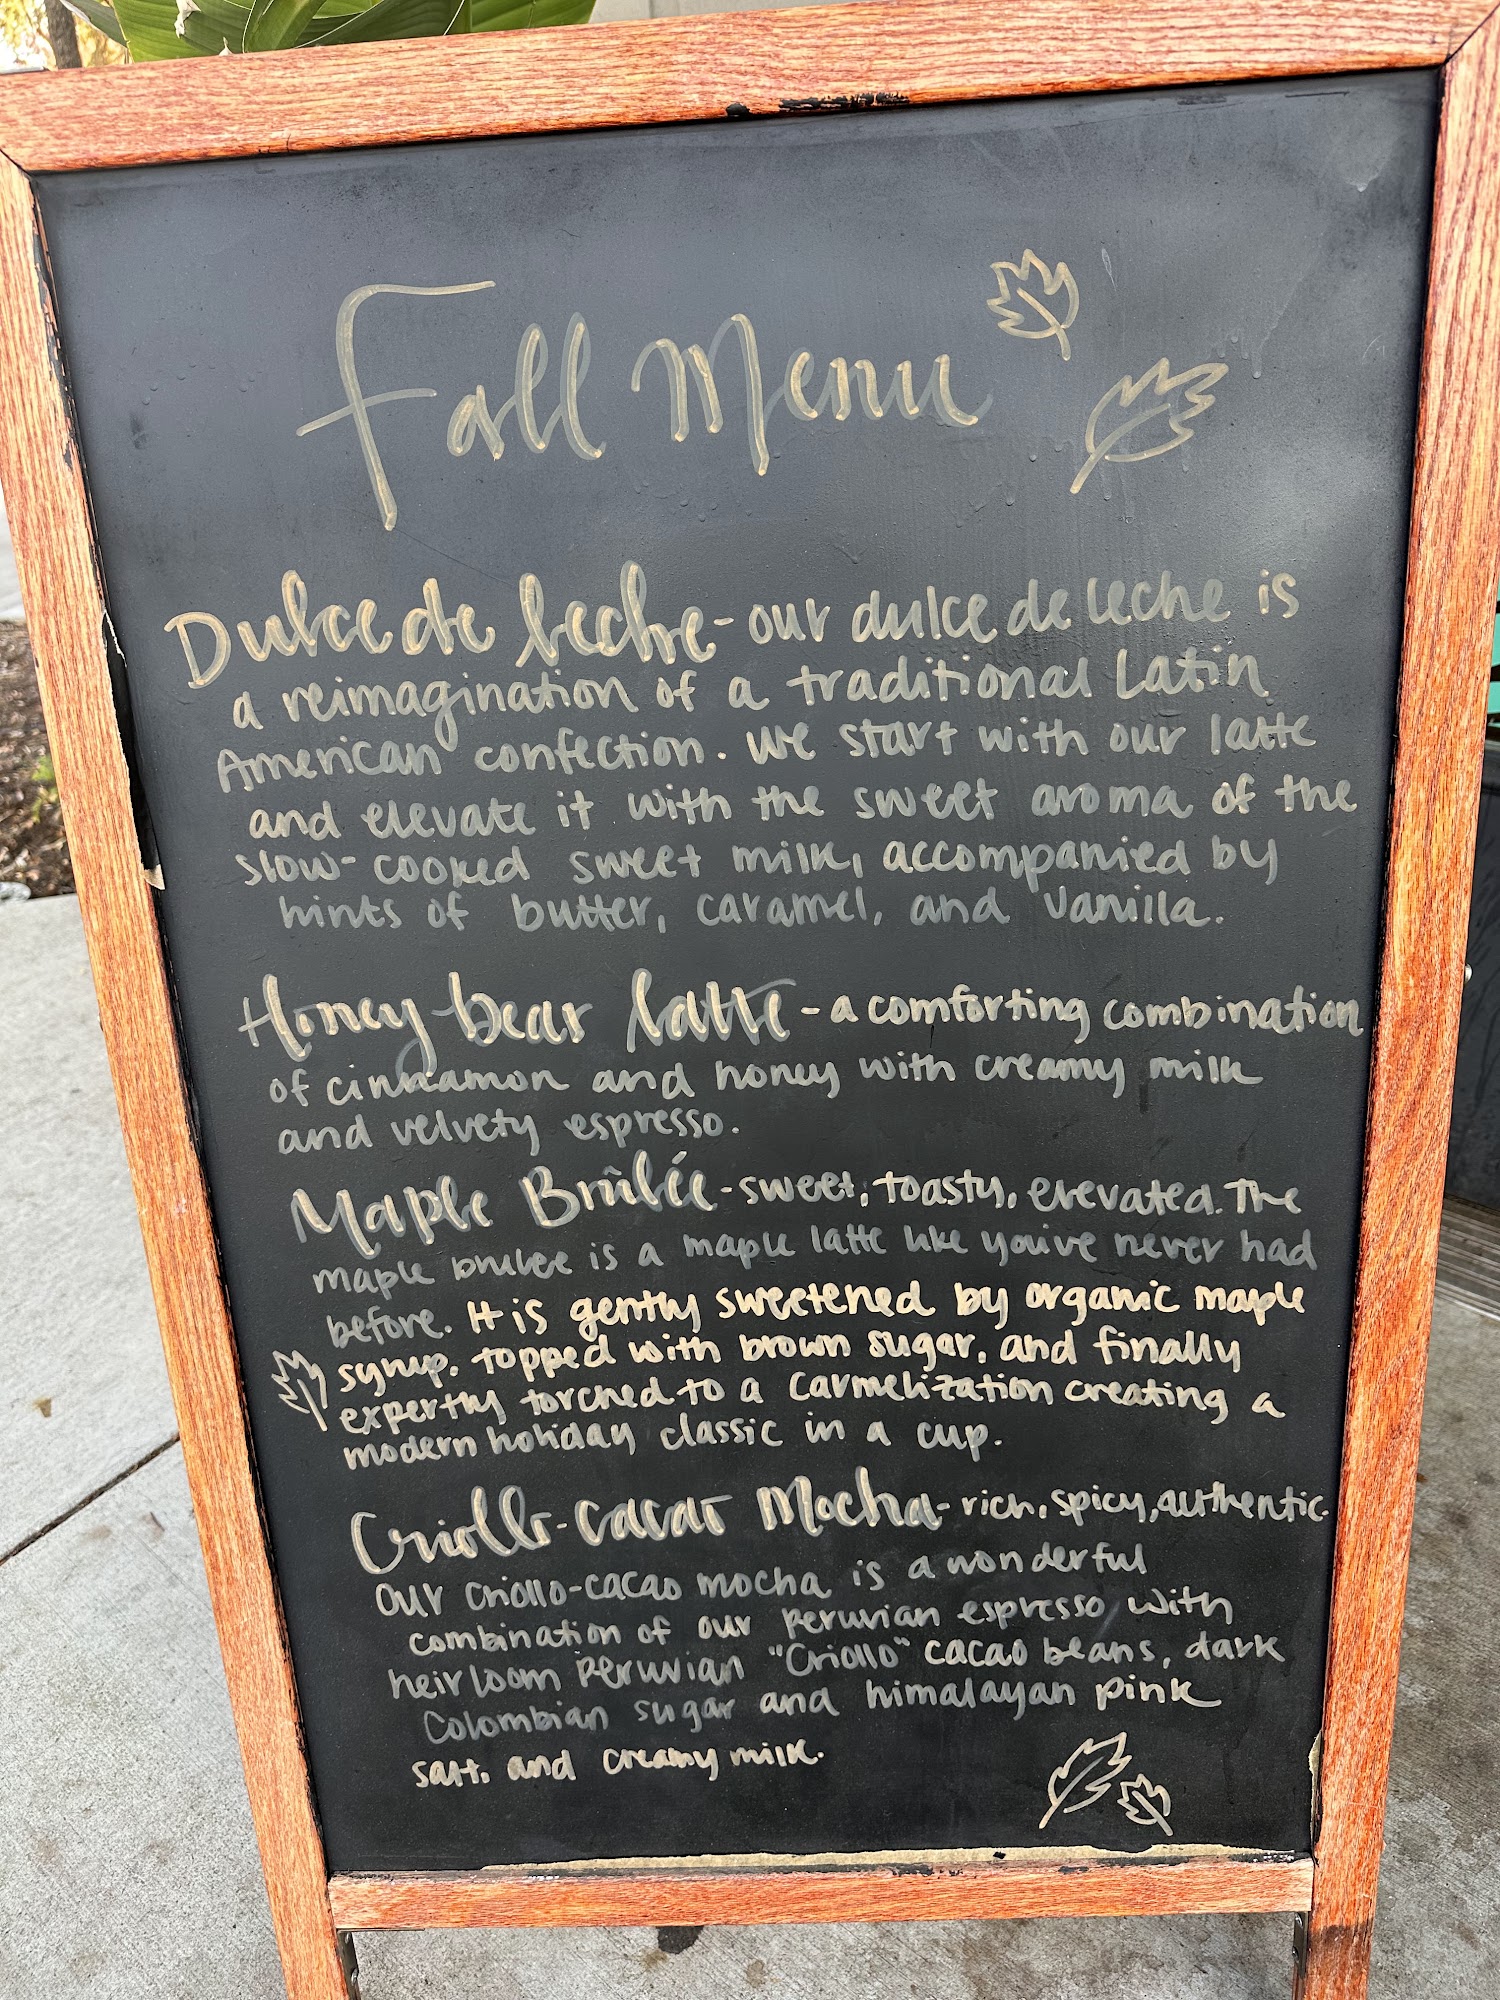 Fall Menu
Dulce de leche - our dulce de leche is
a reimagination of a traditional Latin
American confection. We start with our latte
and elevate it with the sweet aroma of the
slow-cooked sweet milk, accompanied by
hints of butter, caramel, and vanilla.
Honey bear latte - a comforting combination
of cinnamon and honey with creamy milk
and velvety espresso.
Maple Brûlée - sweet, toasty, elevated. The
maple brulee is a maple latte like you've never had
before. It is gently sweetened by organic maple
syrup, topped with brown sugar, and finally
expertly torched to a carmelization creating a
modern holiday classic in a cup.
Criollo-cacao Mocha - rich, spicy, authentic.
Our criollo-cacao mocha is a wonderful
combination of our peruvian espresso with
heirloom peruvian "Criollo" cacao beans, dark
Colombian sugar and himalayan pink
salt, and creamy milk.